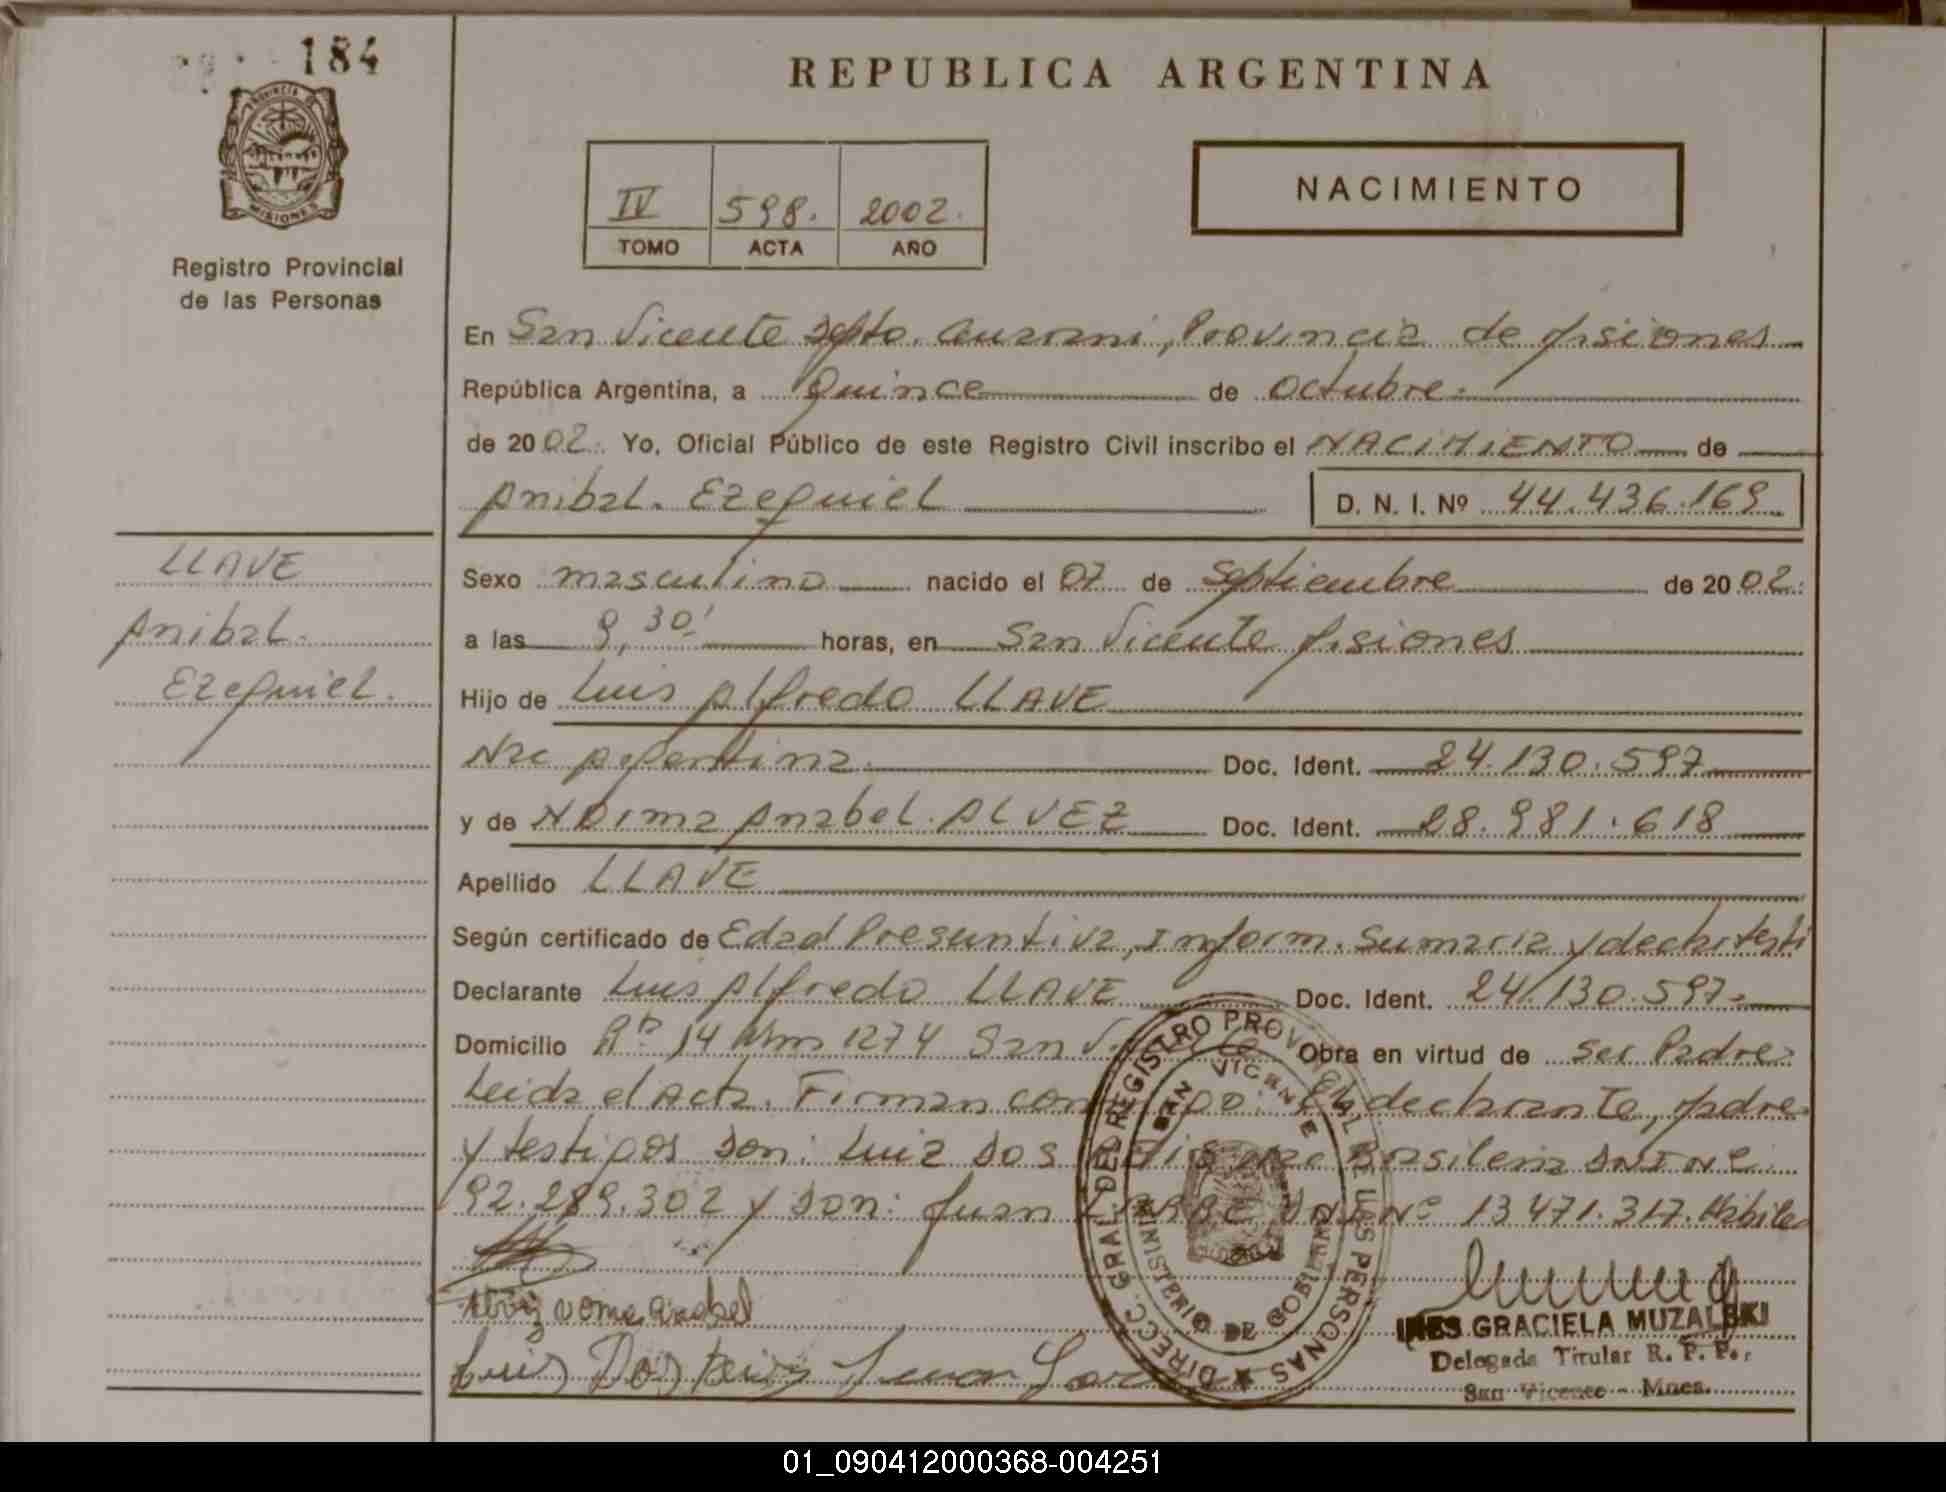 184
PROVINCIA DE
MISIONES
Registro Provincial
de las Personas
REPUBLICA ARGENTINA
IV 598. 2002.
TOMO ACTA AÑO
NACIMIENTO
En San Vicente Dpto. Guarani, Provincia de Misiones
República Argentina, a Quince de Octubre.
de 2002. Yo, Oficial Público de este Registro Civil inscribo el NACIMIENTO de
Anibal. Ezequiel D. N. I. Nº 44.436.169
LLAVE
Anibal.
Ezequiel.
Sexo masculino nacido el 07 de Septiembre de 2002.
a las 9,30' horas, en San Vicente Misiones
Hijo de Luis Alfredo LLAVE
Nac Argentina. Doc. Ident. 24.130.597
y de Norma Anabel. ALVEZ Doc. Ident. 28.981.618
Apellido LLAVE
Según certificado de Edad Presuntiva, Inform. Sumaria y declar testi
Declarante Luis Alfredo LLAVE Doc. Ident. 24/130.597
Domicilio 14 Km 1274 San Obra en virtud de ser Padre
Leida el Acta. Firman con El declarante, padre
y testigos son: Luiz Dos Brasilera DNI Nº
92.289.302 y Don: Juan DNI Nº 13471.317. Habiles
Alvez norma anabel
Luis Dos Juan
DIRECC. GRAL. DEL REGISTRO PROVINCIAL DE LAS PERSONAS
SAN VICENTE
MINISTERIO DE GOBIERNO
INES GRACIELA MUZALSKI
Delegada Titular R. P. P.
San Vicente - Mnes.
01_090412000368-004251